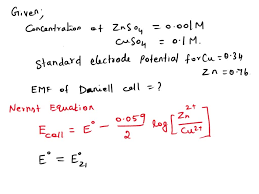 Given;
Concentration of ZnSO4 = 0.001M
CuSO4 = 0.1M.
Standard electrode potential for Cu = 0.34
Zn = 0.76
EMF of Daniell cell = ?
Nernst Equation
E cell = E° - 0.059/2 log [Zn2+/Cu2+]
E° = E°Zn